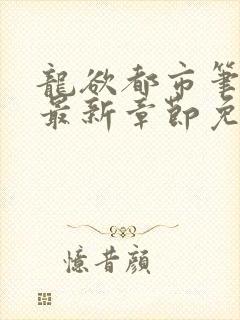 龍欲都市筆
最新章節免
憶昔顔